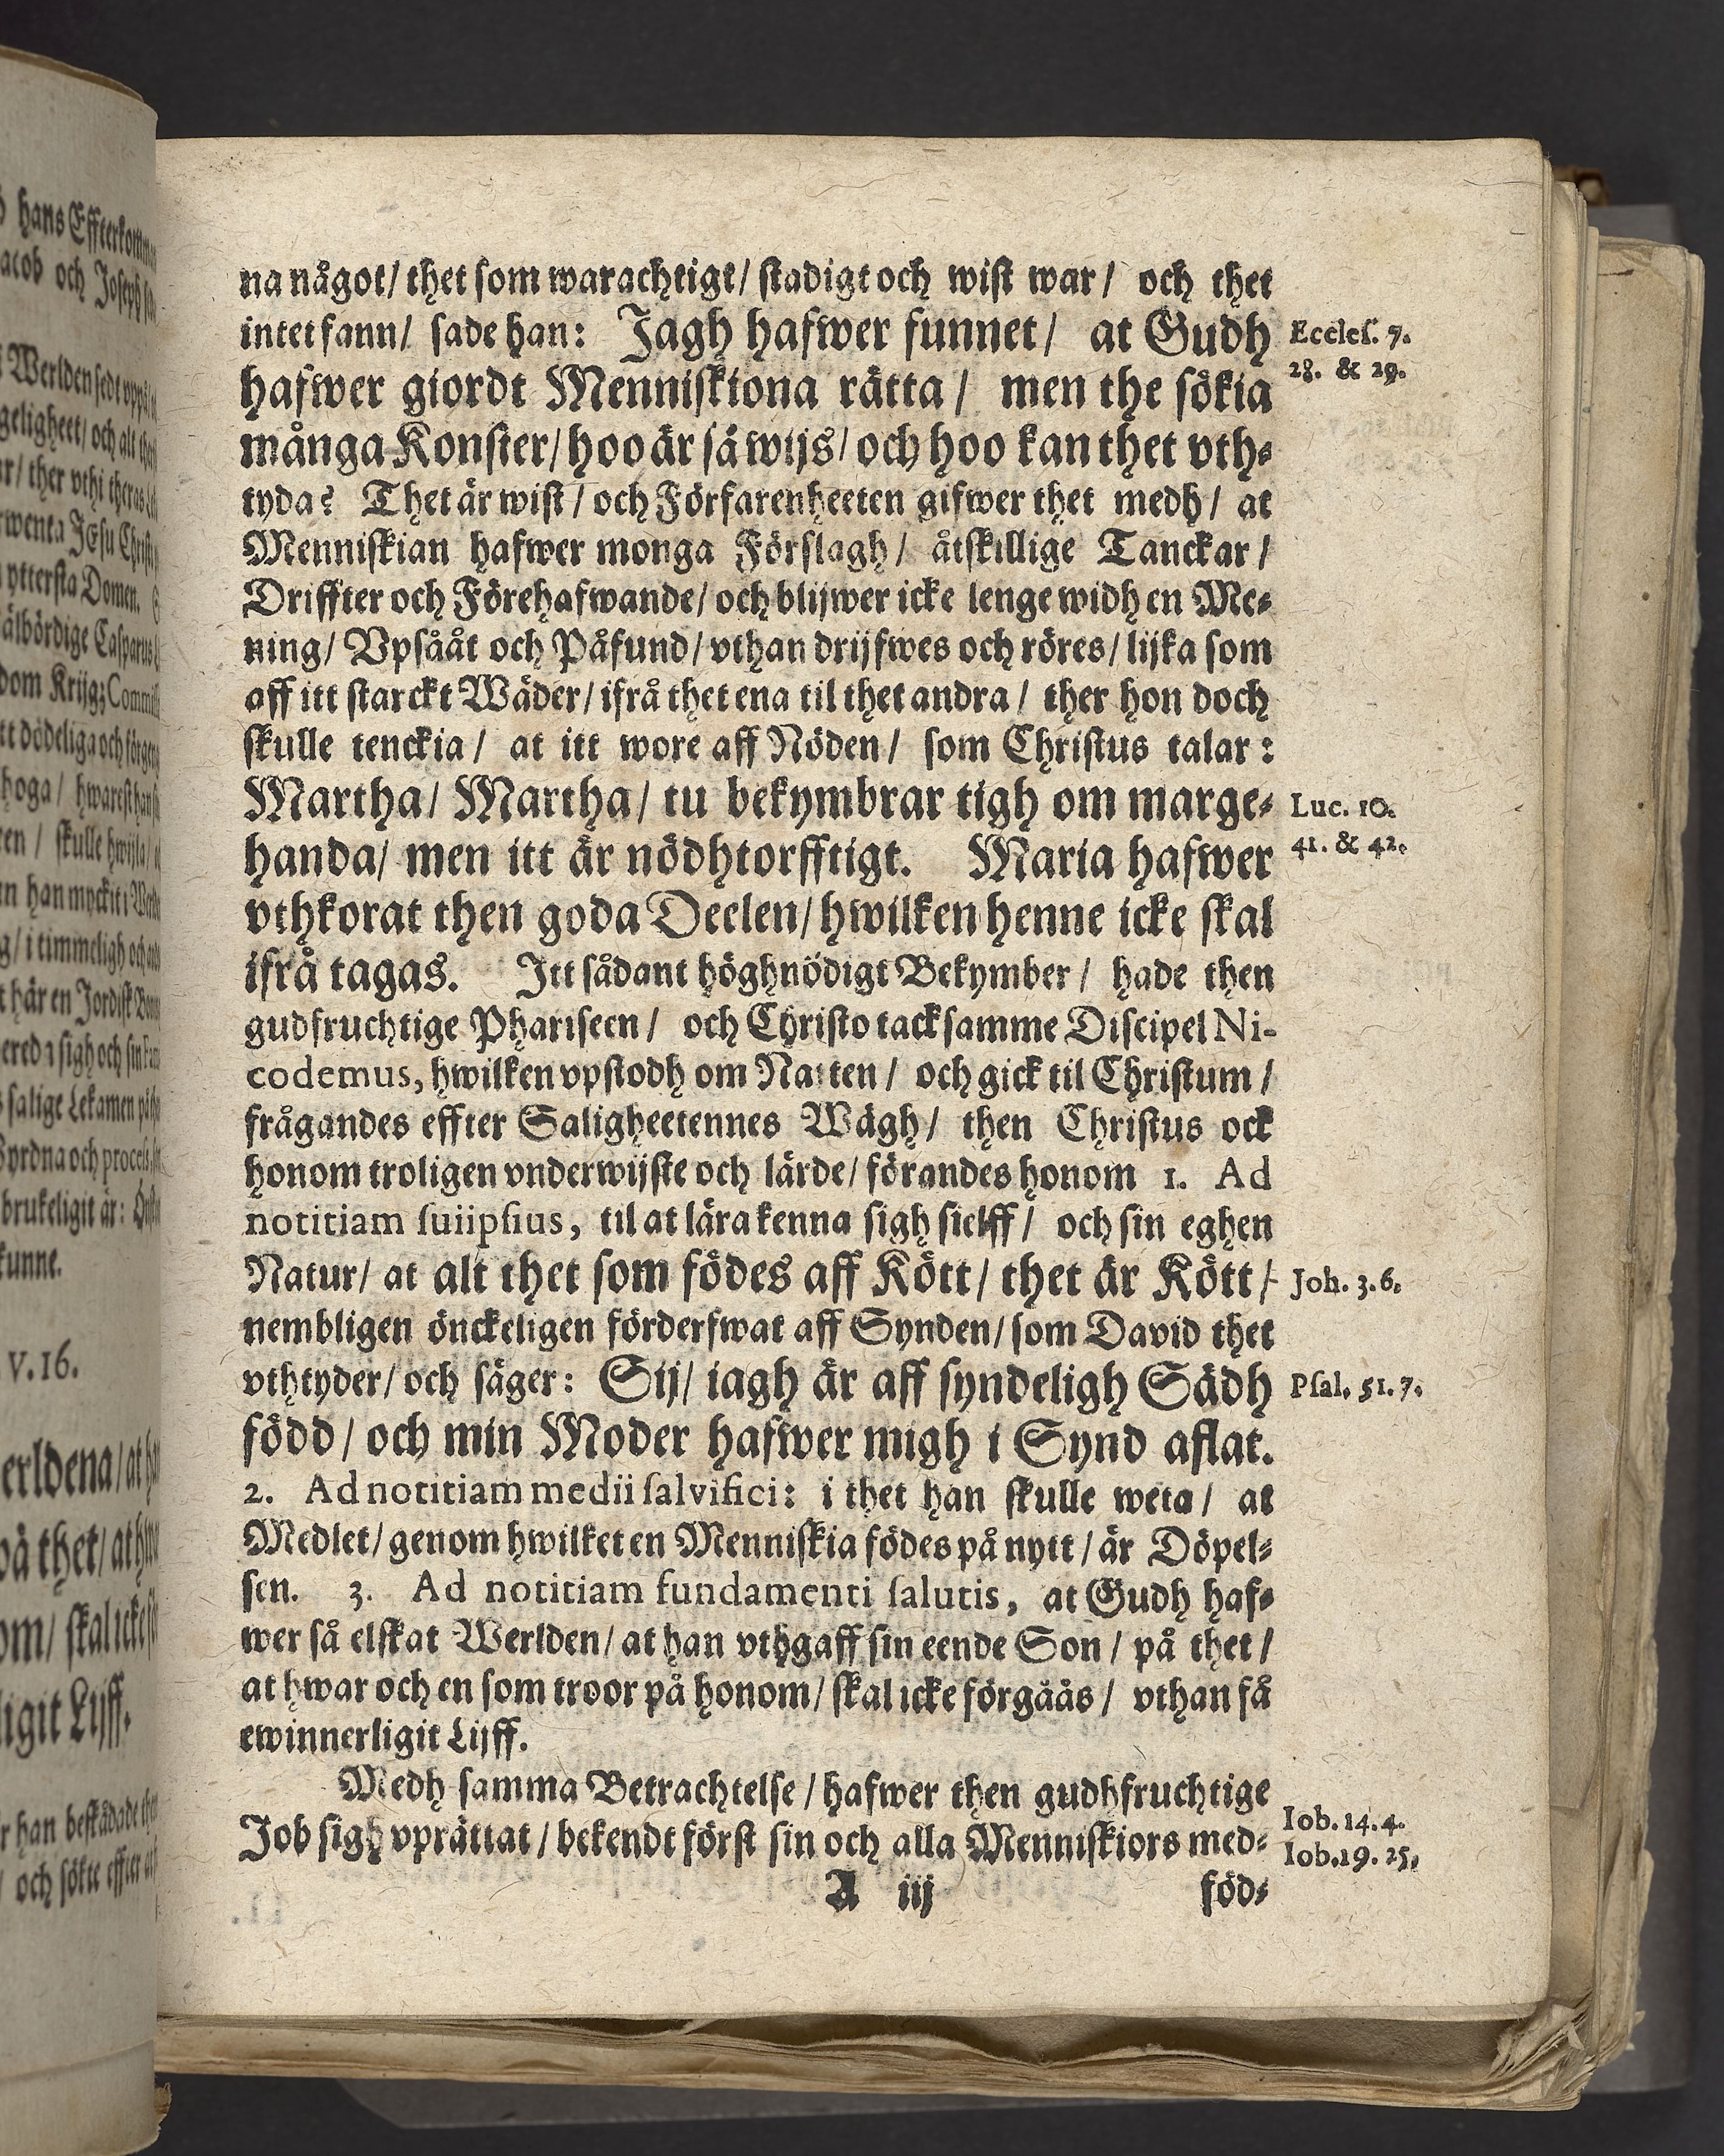 na något/ thet som warachtigt/ stadigt och wist war/ och thet
intet fann/ sade han: Jagh hafwer funnet/ at Gudh
hafwer giordt Menniskiona rätta/ men the sökia
många Konster/ hoo är så wijs/ och hoo kan thet vth-
tyda? Thet är wist/ och Förfarenheeten gifwer thet medh/ at
Menniskian hafwer monga Förslagh/ åtskillige Tanckar/
Driffter och Förehafwande/ och blijwer icke lenge widh en Me-
ning/ Vpsååt och Påfund/ vthan drijfwes och röres/ lijka som
aff itt starckt Wäder/ ifrå thet ena til thet andra/ ther hon doch
skulle tenckia/ at itt wore aff Nöden/ som Christus talar:
Martha/ Martha/ tu bekymbrar tigh om marge-
handa/ men itt är nödhtorfftigt. Maria hafwer
vthkorat then goda Deelen/ hwilken henne icke skal
ifrå tagas. Itt sådant höghnödigt Bekymber/ hade then
gudfruchtige Phariseen/ och Christo tacksamme Discipel Ni-
codemus, hwilken vpstodh om Natten/ och gick til Christum/
frågandes effter Saligheetennes Wägh/ then Christus ock
honom troligen vnderwijste och lärde/ förandes honom 1. Ad
notitiam suiipsius, til at lära kenna sigh sielff/ och sin eghen
Natur/ at alt thet som födes aff Kött/ thet är Kött/
nembligen önckeligen förderfwat aff Synden/ som David thet
vthtyder/ och säger: Sij/ iagh är aff syndeligh Sädh
född/ och min Moder hafwer migh i Synd aflat.
2. Ad notitiam medii salvifici: i thet han skulle weta/ at
Medlet/ genom hwilket en Menniskia födes på nytt/ är Döpel-
sen. 3. Ad notitiam fundamenti salutis, at Gudh haf-
wer så elskat Werlden/ at han vthgaff sin eende Son/ på thet/
at hwar och en som troor på honom/ skal icke förgåås/ vthan få
ewinnerligit Lijff.
Medh samma Betrachtelse/ hafwer then gudhfruchtige
Job sigh vprättat/ bekendt först sin och alla Menniskiors med-
A iij föd-
Eccles. 7.
28. & 29.
Luc. 10.
41. & 42.
Joh. 3. 6.
Psal. 51. 7.
Iob. 14. 4.
Iob. 19. 25.